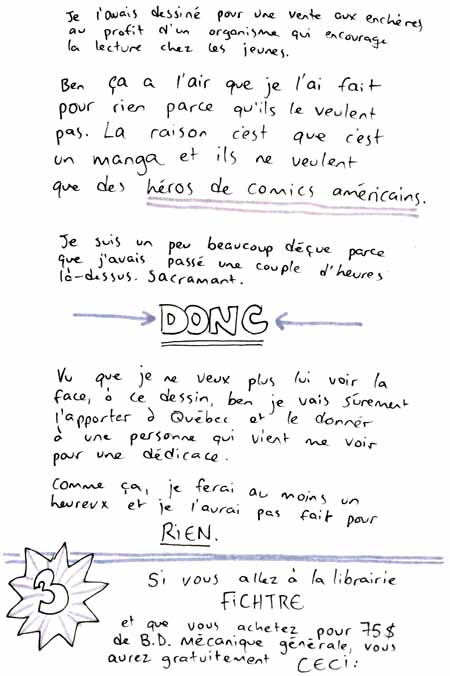 Je l'avais dessiné pour une vente aux enchères
au profit d'un organisme qui encourage
la lecture chez les jeunes.
Ben ça a l'air que je l'ai fait
pour rien parce qu'ils le veulent
pas. La raison c'est que c'est
un manga et ils ne veulent
que des héros de comics américains.
Je suis un peu beaucoup déçue parce
que j'avais passé une couple d'heures
là-dessus. Sacramant.
DONC
Vu que je ne veux plus lui voir la
face, à ce dessin, ben je vais sûrement
l'apporter à Québec et le donner
à une personne qui vient me voir
pour une dédicace.
Comme ça, je ferai au moins un
heureux et je l'aurai pas fait pour
RIEN.
3
Si vous allez à la librairie
FICHTRE
et que vous achetez pour 75$
de B.D. Mécanique générale, vous
aurez gratuitement CECI: